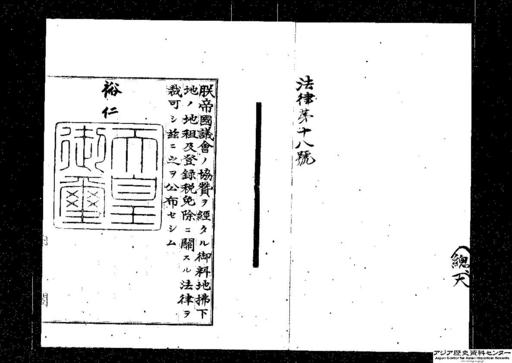 法律第十八號
朕帝國議會ノ協贊ヲ經タル御料地拂下
地ノ地租及登録税免除ニ關スル法律ヲ
裁可シ茲ニ之ヲ公布セシム
裕仁
天皇
御璽
アジア歴史資料センター
Japan Center for Asian Historical Records